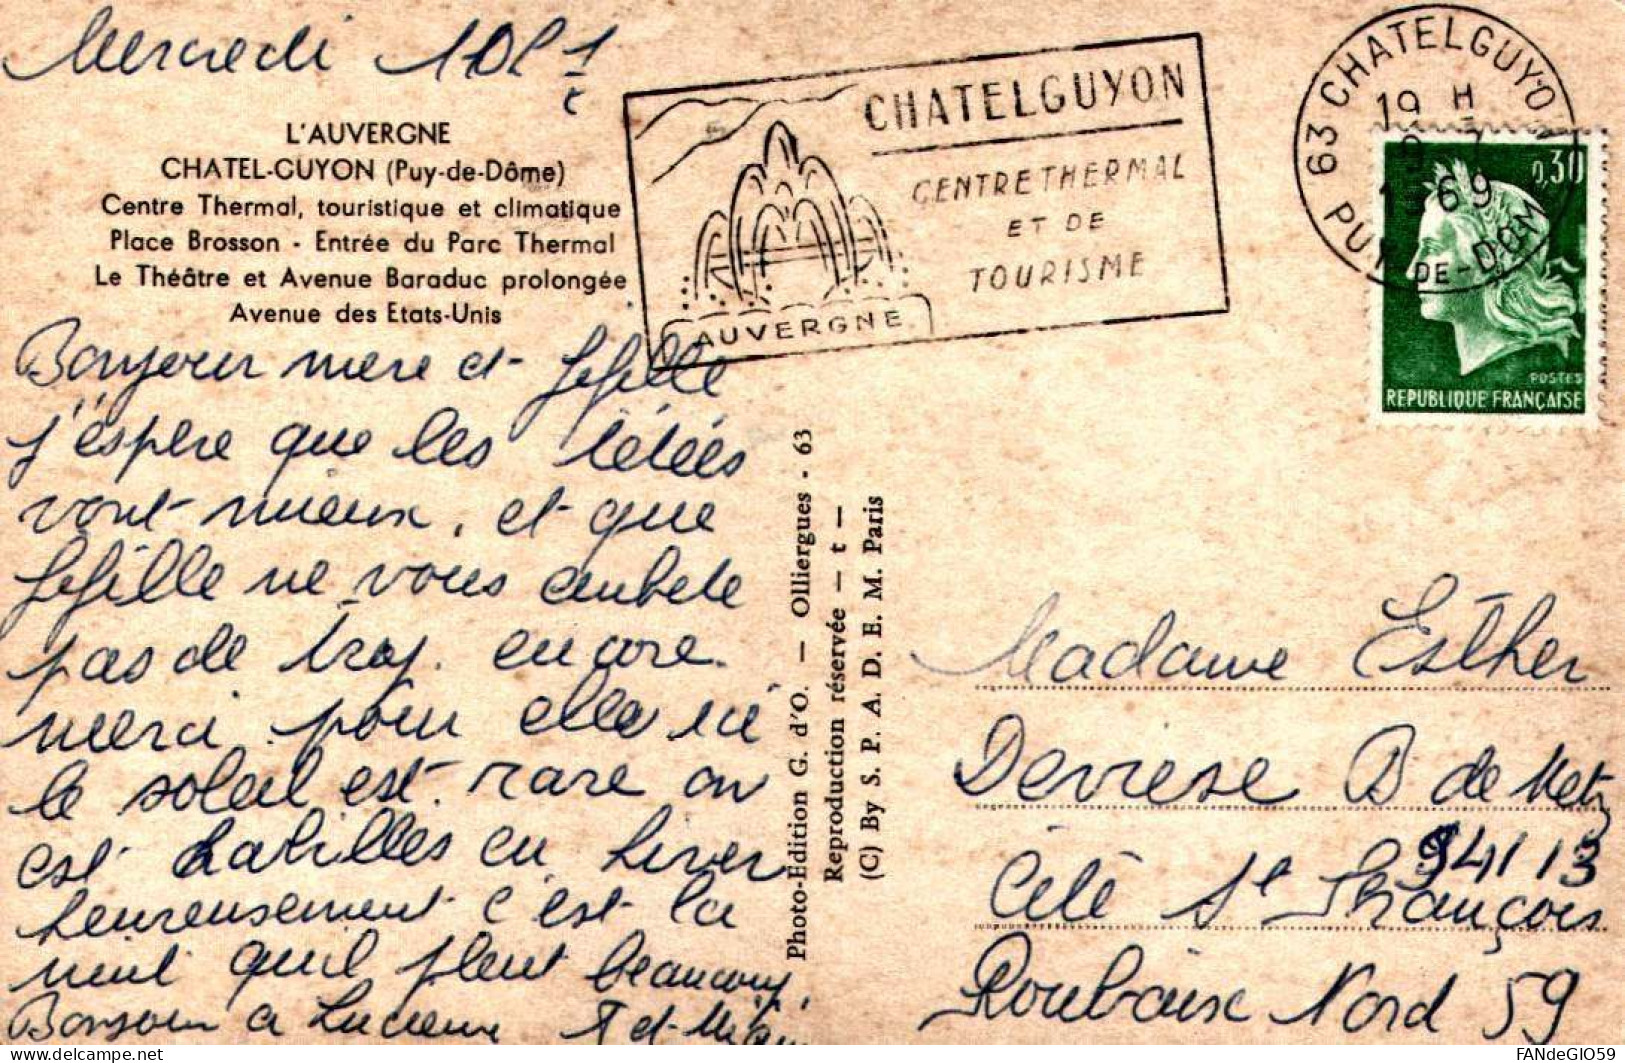 Mercredi
L'AUVERGNE
CHATEL-GUYON (Puy-de-Dôme)
Centre Thermal, touristique et climatique
Place Brosson - Entrée du Parc Thermal
Le Théâtre et Avenue Baraduc prolongée
Avenue des Etats-Unis
CHATELGUYON
CENTRE THERMAL
ET DE
TOURISME
AUVERGNE
63 CHATELGUYO
19 H
69
PUY-DE-DOM
0,30
POSTES
REPUBLIQUE FRANÇAISE
Bonjour mere et fifille
j'éspère que les
vont mieux, et que
fifille ne vous embete
pas de trop. encore
merci pour elle ici
le soleil est rare on
est habilles en hiver
heureusement c'est la
nuit quil pleut beaucoup,
Bonsoir a Lucienne
Photo-Edition G. d'O. — Olliergues - 63
Reproduction réservée — t —
(C) By S. P. A. D. E. M. Paris
Madame Esther
Deviese B de Metz
94113
Cité St François
Roubaix Nord 59
FANdeGIO59